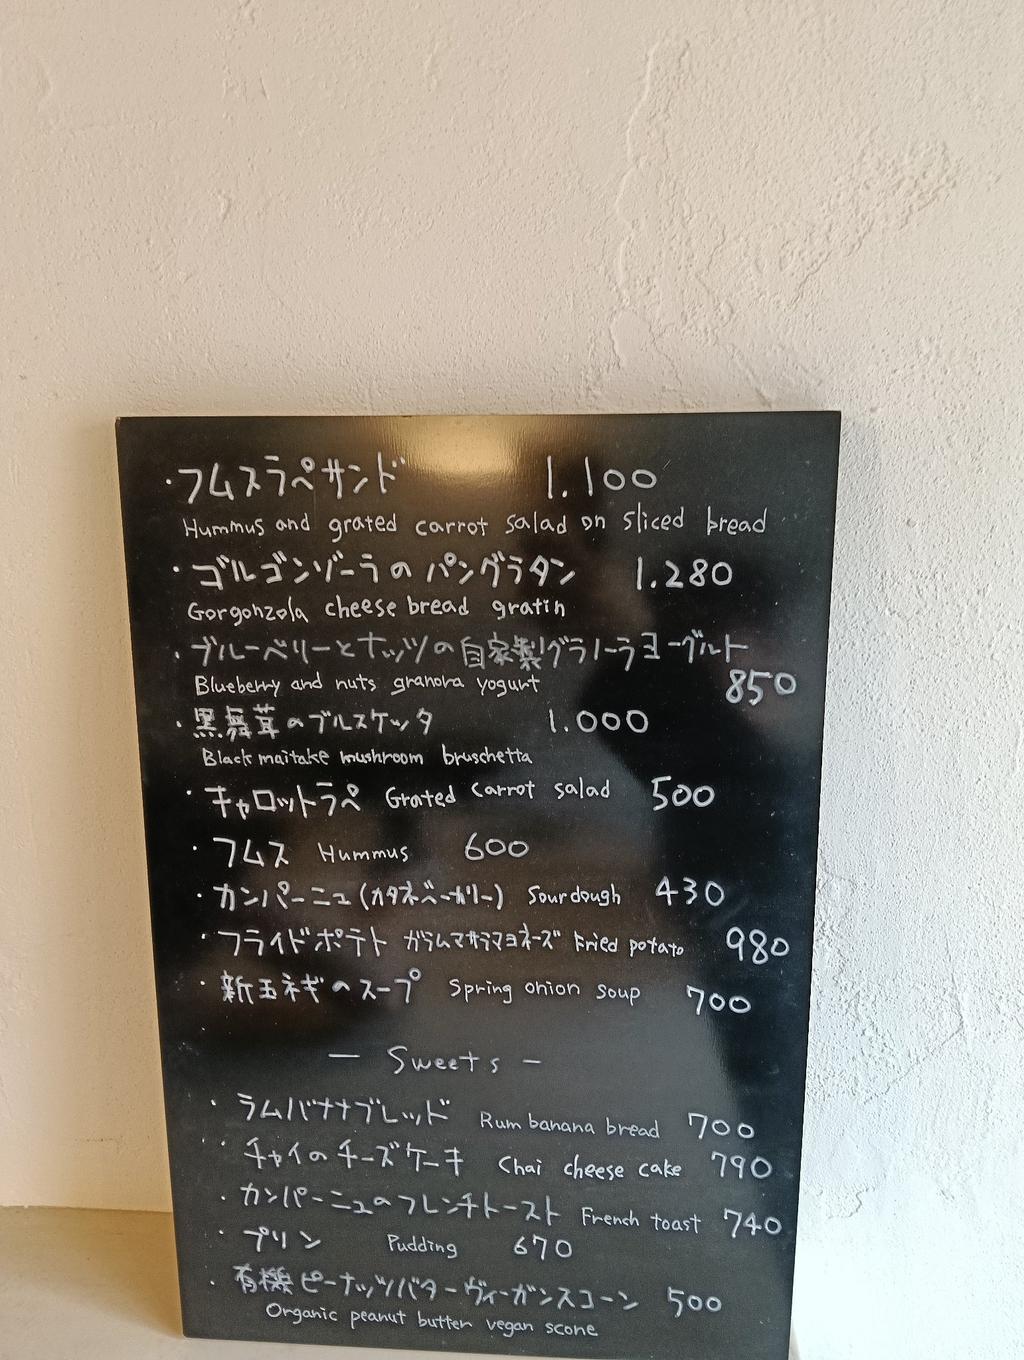 ・フムスラペサンド 1.100
Hummus and grated carrot salad on sliced bread
・ゴルゴンゾーラのパングラタン 1.280
Gorgonzola cheese bread gratin
・ブルーベリーとナッツの自家製グラノーラヨーグルト
850
Blueberry and nuts granora yogurt
・黒舞茸のブルスケッタ 1.000
Black maitake mushroom bruschetta
・キャロットラペ Grated carrot salad 500
・フムス Hummus 600
・カンパーニュ(カタネベーカリー) Sourdough 430
・フライドポテト ガラムマサラマヨネーズ Fried potato 980
・新玉ネギのスープ Spring onion soup 700
— Sweets —
・ラムバナナブレッド Rum banana bread 700
・チャイのチーズケーキ Chai cheese cake 790
・カンパーニュのフレンチトースト French toast 740
・プリン Pudding 670
・有機ピーナッツバターヴィーガンスコーン 500
Organic peanut butter vegan scone